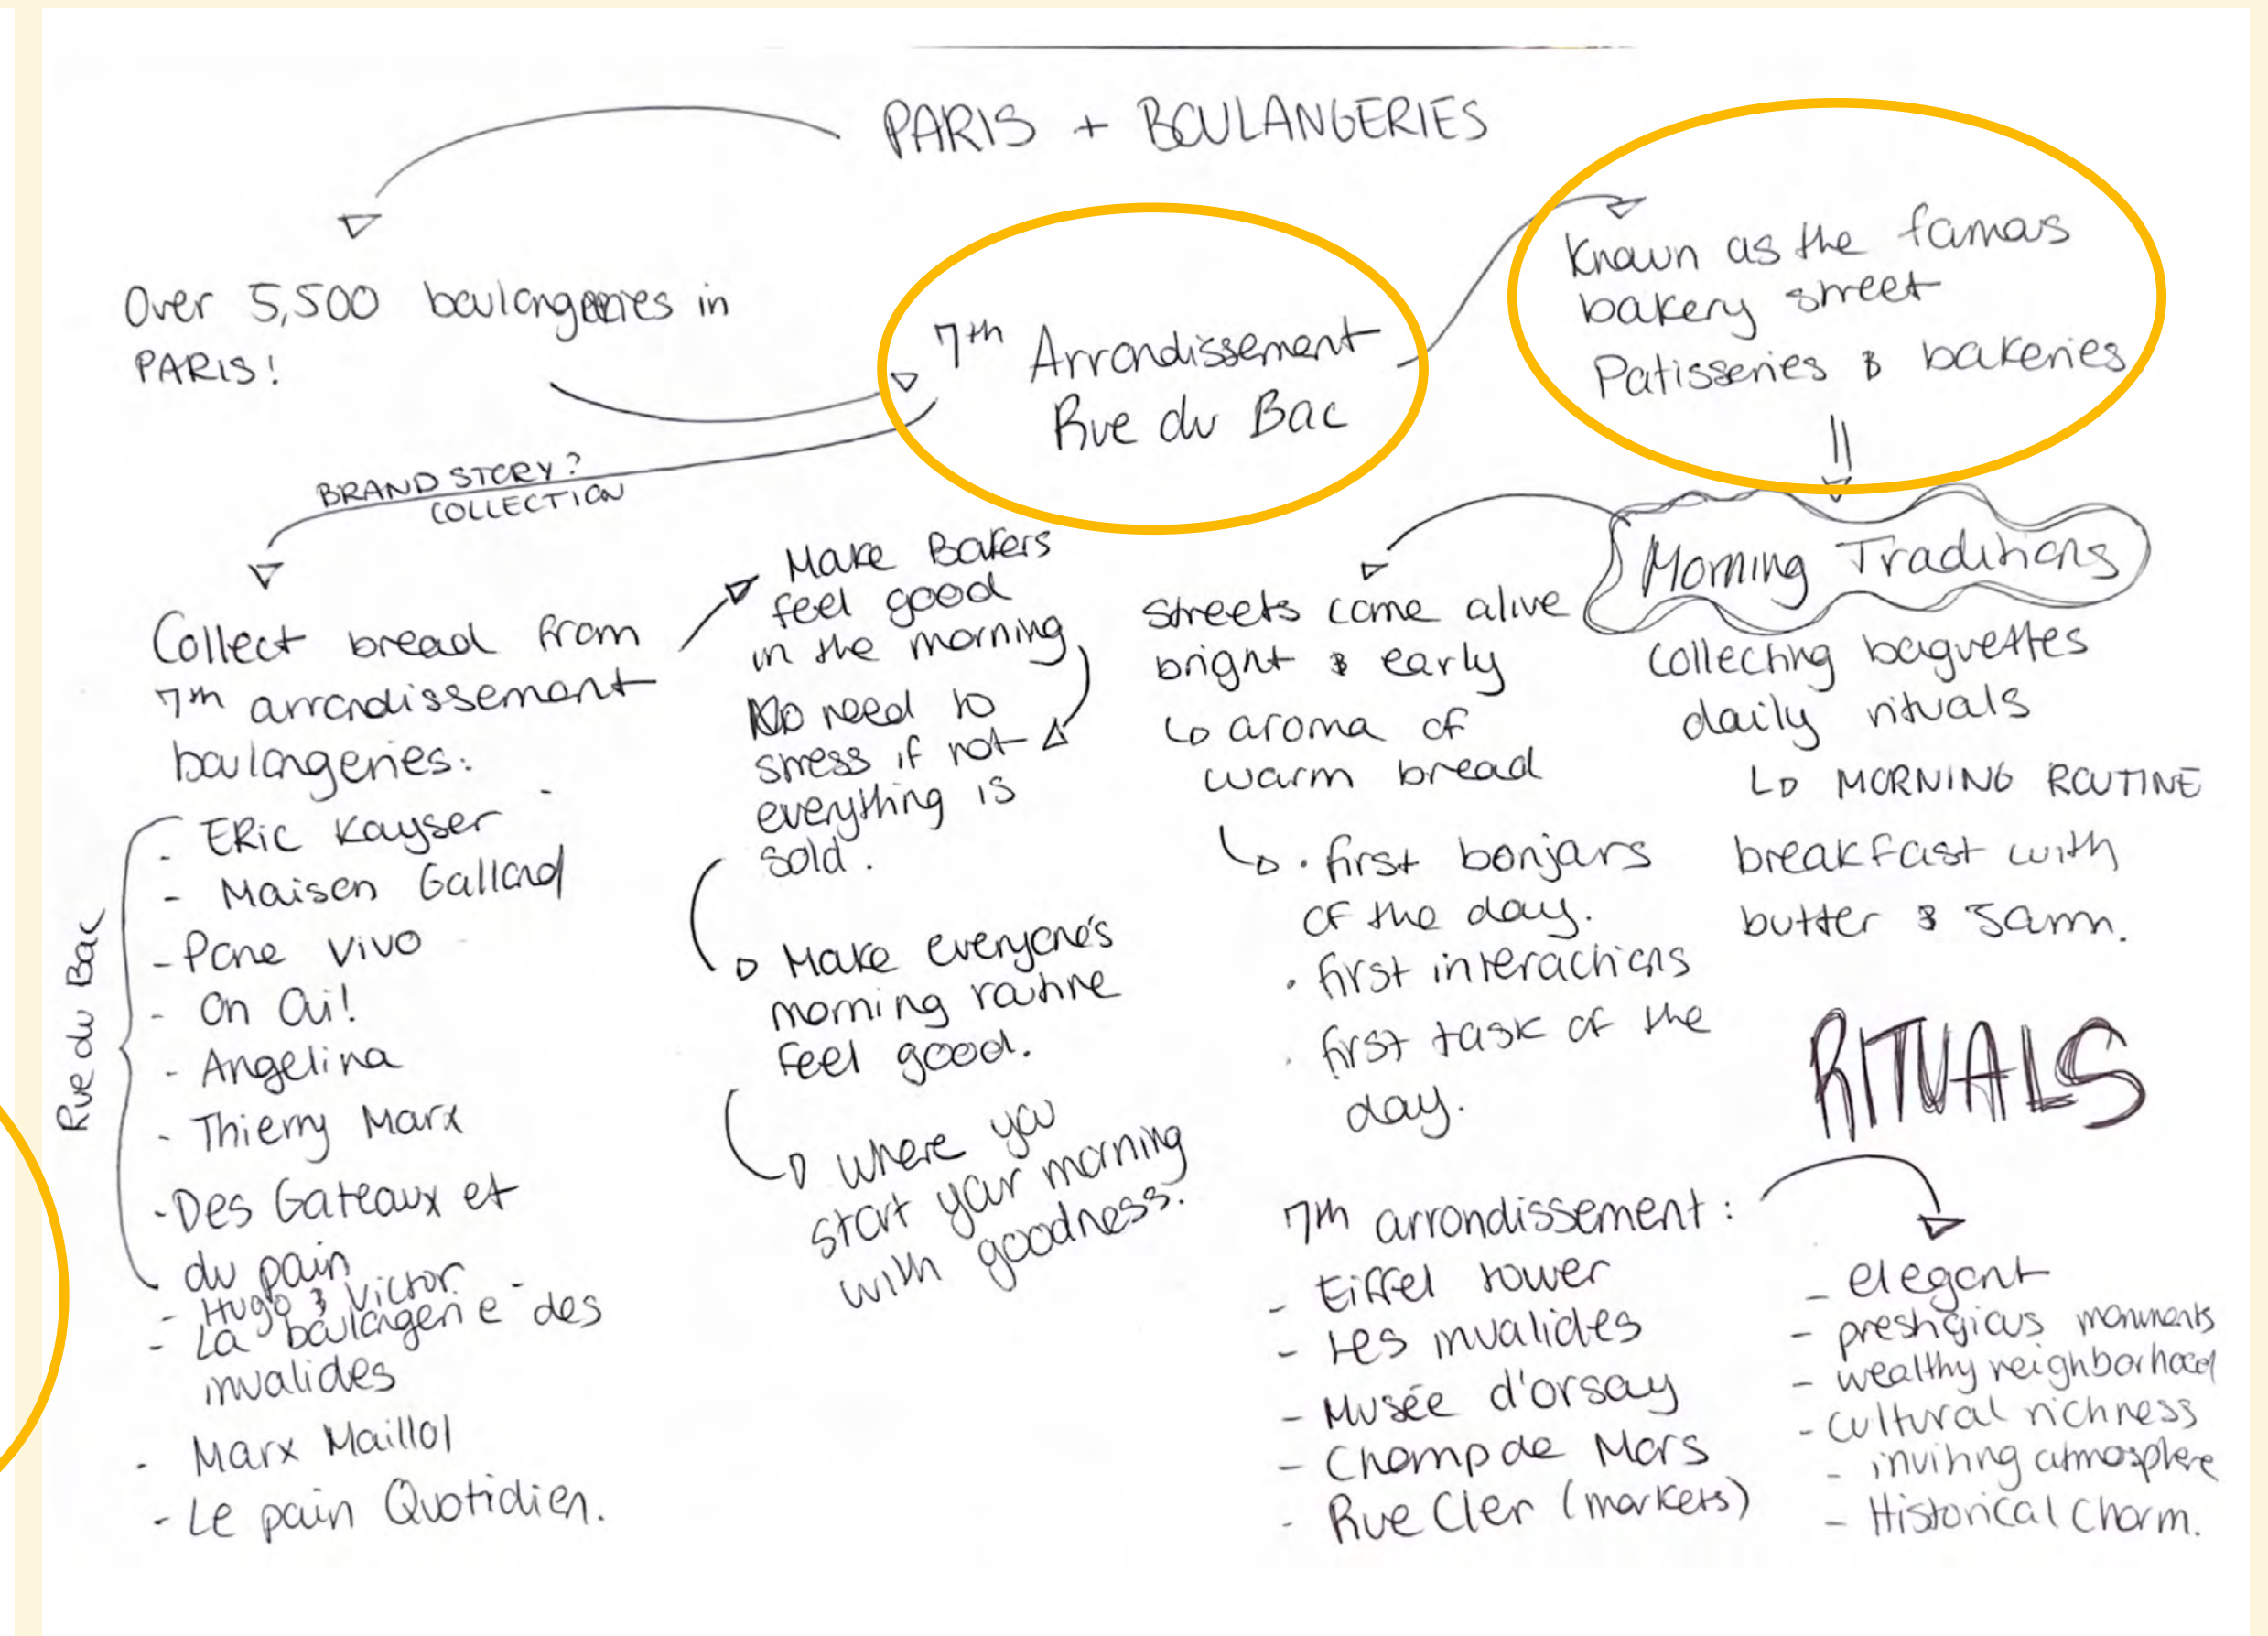 PARIS + BOULANGERIES
Over 5,500 boulangeries in
PARIS!
7th Arrondissement
Rue du Bac
Known as the famous
bakery street
Patisseries & bakeries
BRAND STORY?
COLLECTION
Collect bread from
7th arrondissement
boulangeries:
Rue du Bac
- ERic Kayser -
- Maison Galland
- Pane Vivo -
- On Oui!
- Angelina
- Thierry Marx
- Des Gateaux et
du pain
- Hugo & Victor
- La boulangerie des
invalides
- Marx Maillol
- Le pain Quotidien.
Make Bakers
feel good
in the morning
No need to
stress if not
everything is
sold.
Make everyone's
morning routine
feel good.
where you
start your morning
with goodness.
Morning Traditions
Streets come alive
bright & early
aroma of
warm bread
• first bonjours
of the day.
• first interactions
• first task of the
day.
collecting baguettes
daily rituals
MORNING ROUTINE
breakfast with
butter & Jamn.
RITUALS
7th arrondissement:
- Eiffel tower
- Les invalides
- Musée d'orsay
- Champ de Mars
- Rue Cler (markets)
- elegant
- prestigious monuments
- wealthy neighborhood
- cultural richness
- inviting atmosphere
- Historical charm.